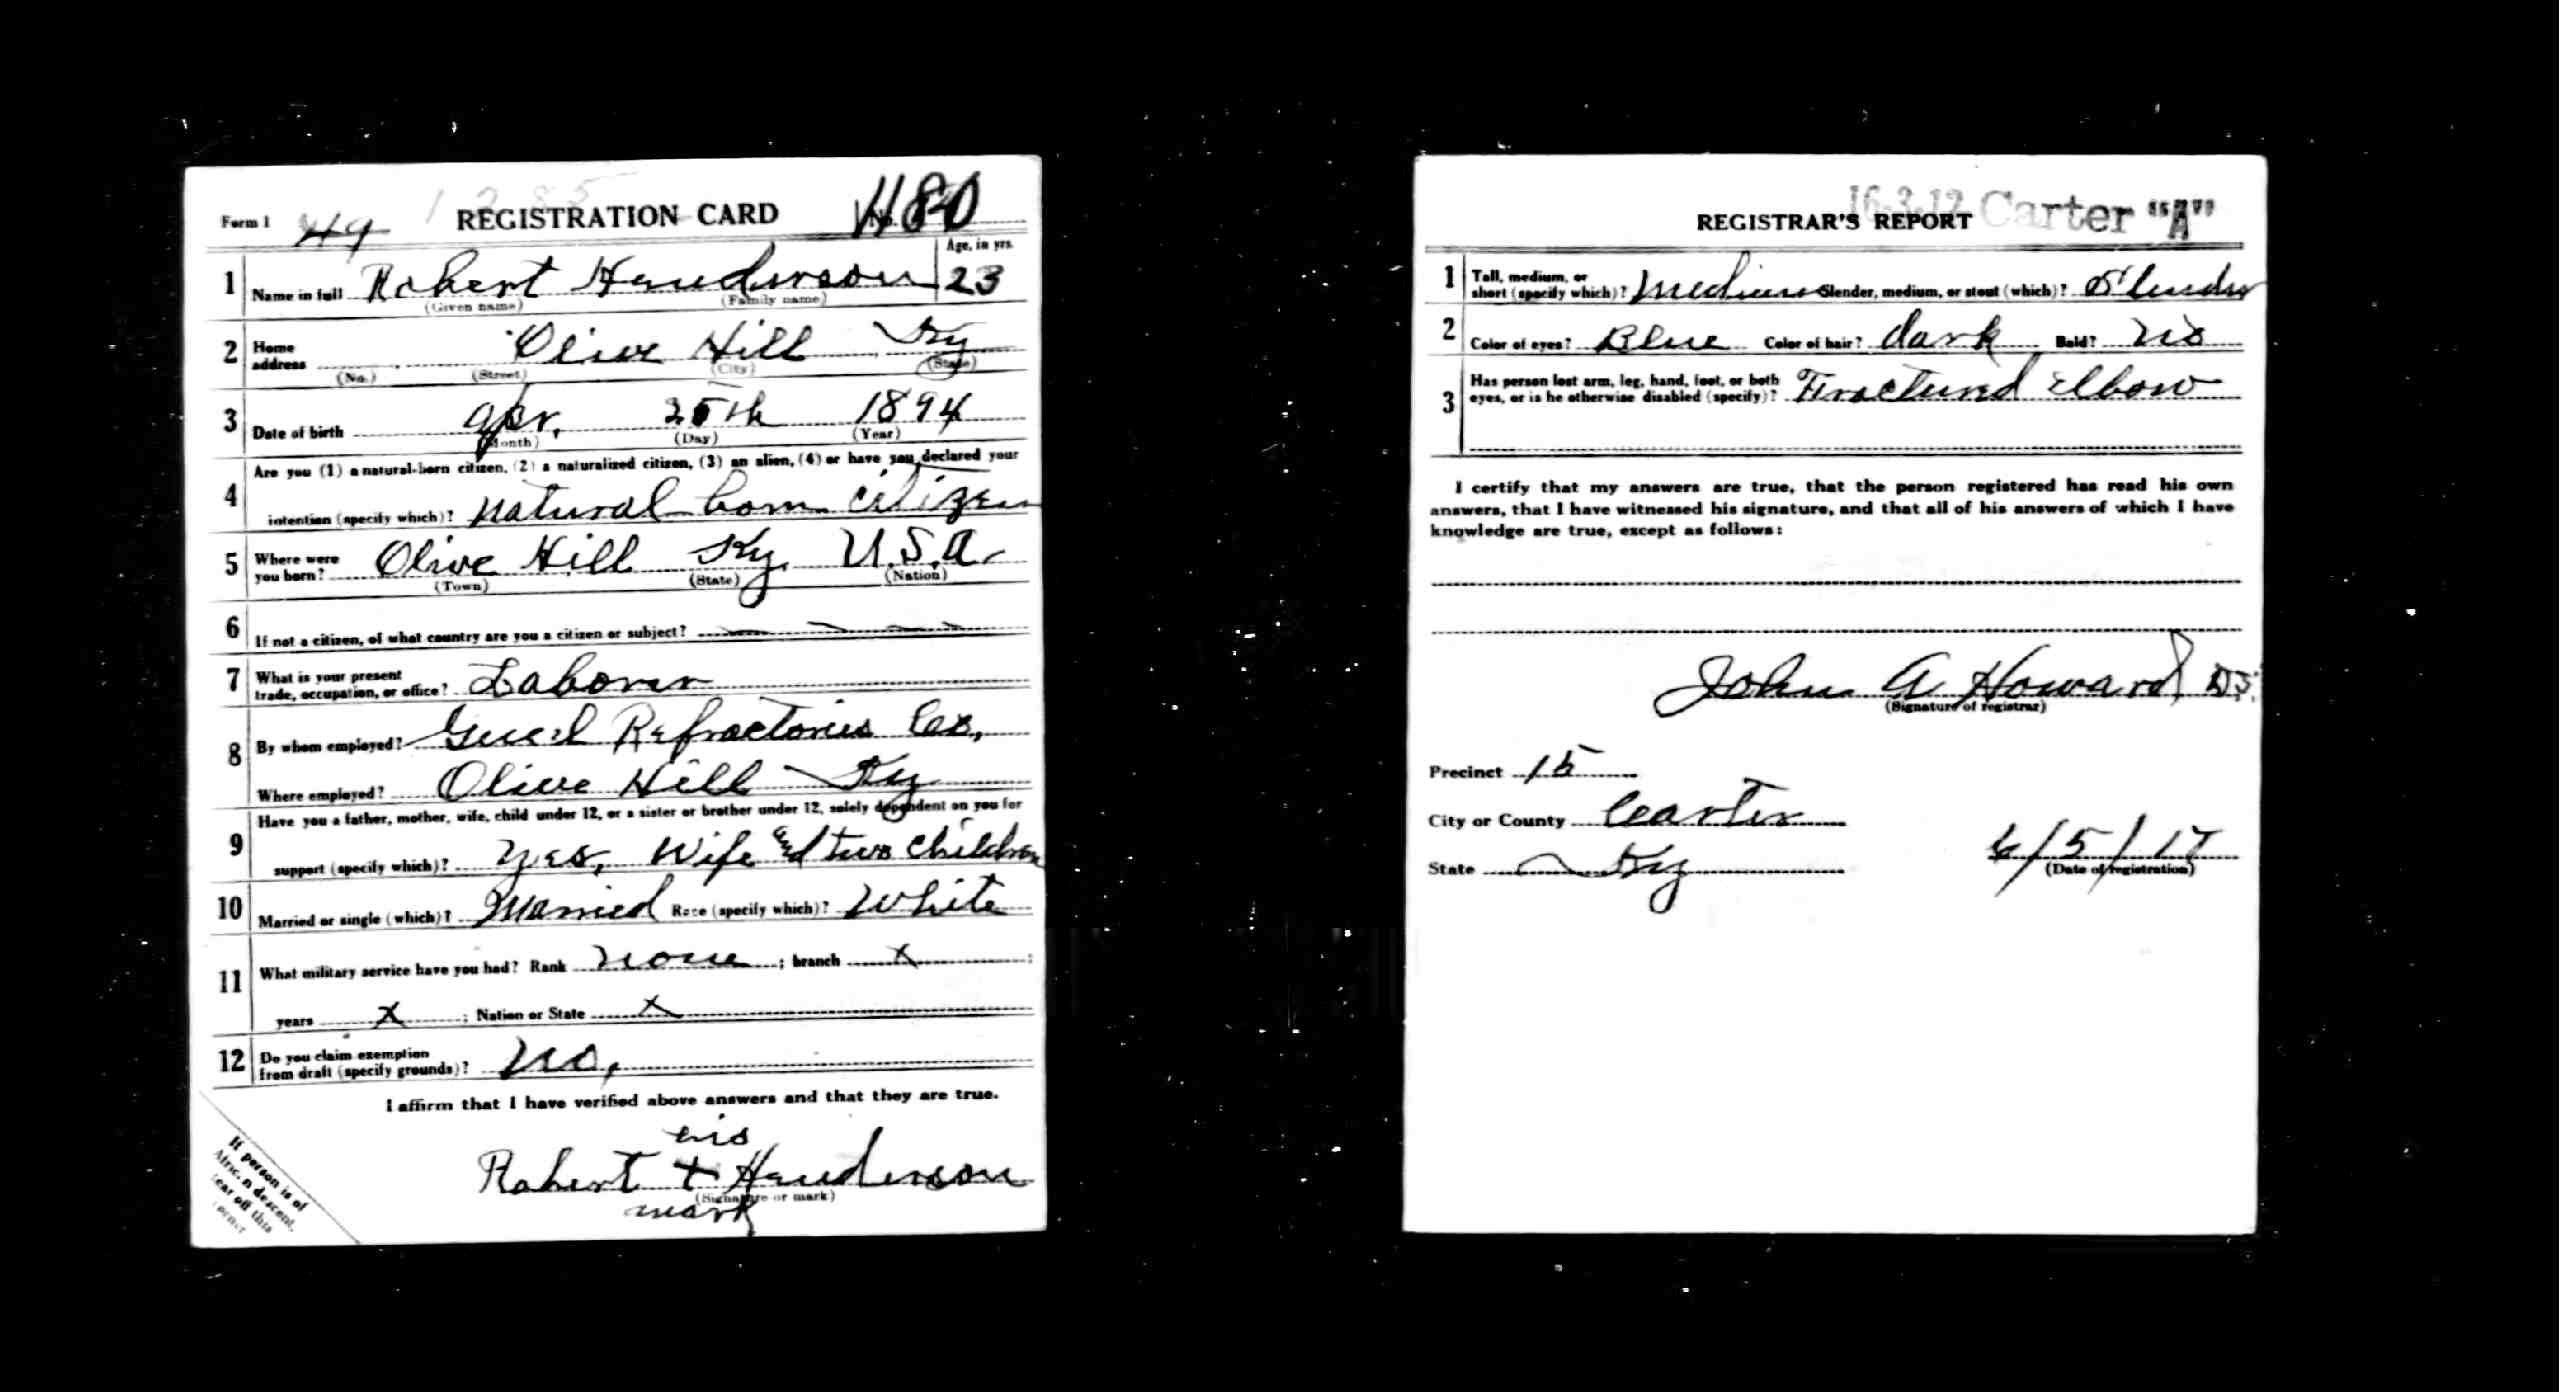 Form 1 49 REGISTRATION CARD No. 1180
1 Name in full Robert Henderson Age, in yrs. 23
(Given name) (Family name)
2 Home address Olive Hill Ky
(No.) (Street) (City) (State)
3 Date of birth Apr. 25th 1894
(Month) (Day) (Year)
4 Are you (1) a natural-born citizen, (2) a naturalized citizen, (3) an alien, (4) or have you declared your
intention (specify which)? Natural born citizen
5 Where were you born? Olive Hill Ky. U.S.A.
(Town) (State) (Nation)
6 If not a citizen, of what country are you a citizen or subject?
7 What is your present trade, occupation, or office? Laborer
8 By whom employed? Refractories Co,
Where employed? Olive Hill Ky
9 Have you a father, mother, wife, child under 12, or a sister or brother under 12, solely dependent on you for
support (specify which)? Yes, Wife and two children
10 Married or single (which)? Married Race (specify which)? White
11 What military service have you had? Rank none ; branch x ;
years x ; Nation or State x
12 Do you claim exemption from draft (specify grounds)? No,
I affirm that I have verified above answers and that they are true.
his
Robert + Henderson
(Signature or mark)
mark
If person is of
African descent,
tear off this
corner
16-3-12 Carter "A"
REGISTRAR'S REPORT
1 Tall, medium, or short (specify which)? Medium Slender, medium, or stout (which)? Slender
2 Color of eyes? Blue Color of hair? dark Bald? No
3 Has person lost arm, leg, hand, foot, or both eyes, or is he otherwise disabled (specify)? Fractured Elbow
I certify that my answers are true, that the person registered has read his own
answers, that I have witnessed his signature, and that all of his answers of which I have
knowledge are true, except as follows:
John A Howard, D.S.
(Signature of registrar)
Precinct 15
City or County Carter
State Ky
6/5/17
(Date of registration)